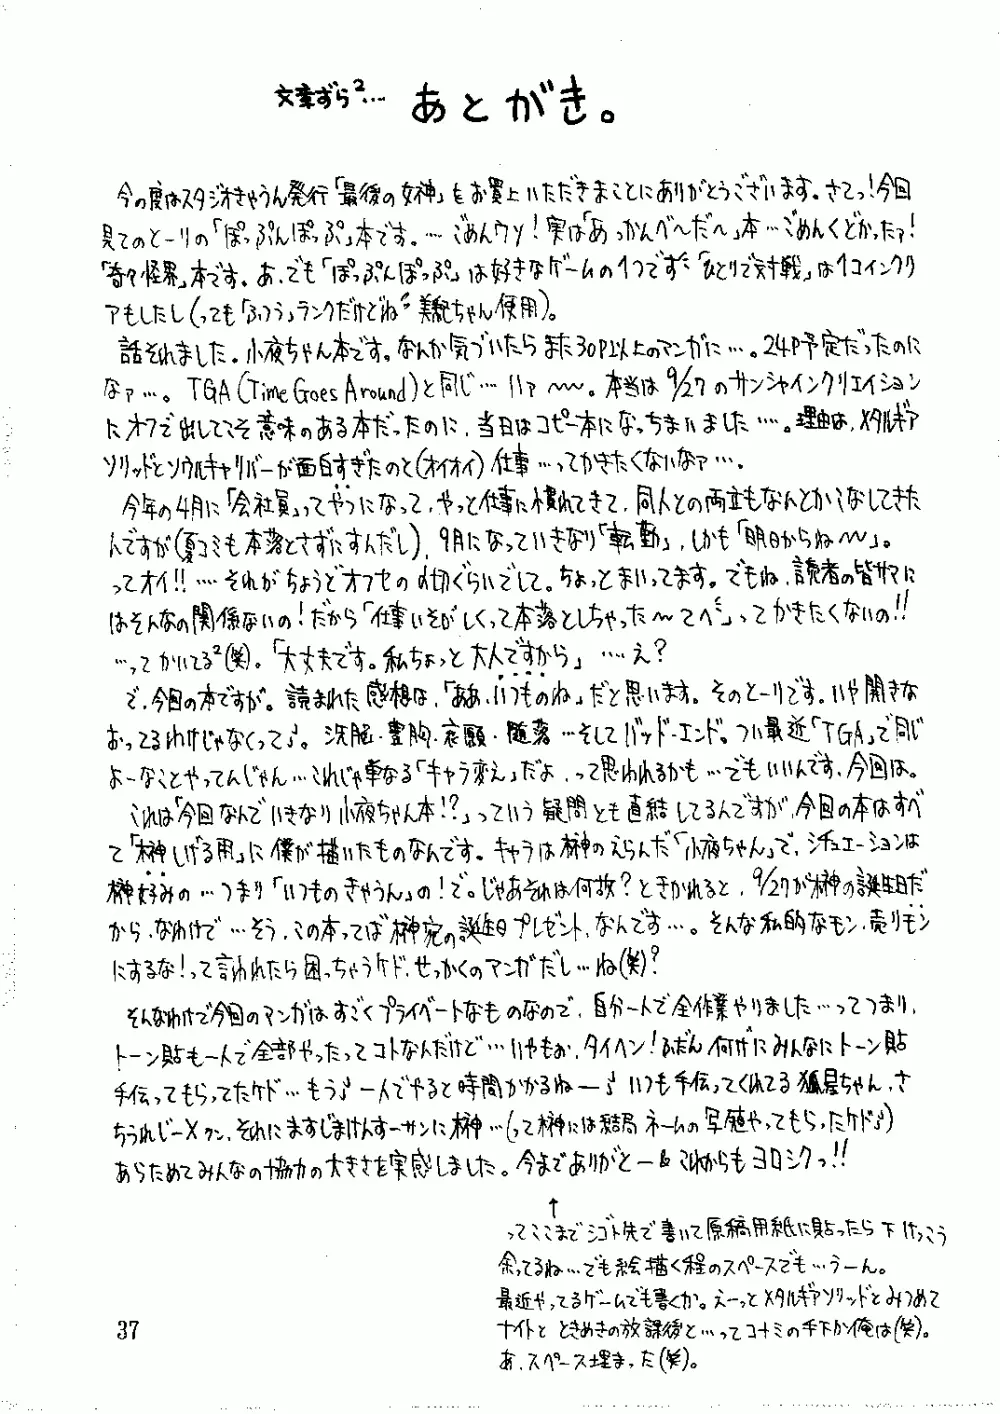 文章ずら²… あとがき。
今の度はスタジオきゃうん発行「最後の女神」をお買上いただきまことにありがとうございます。さてっ!今回
見てのとーりの「ぽっぷんぽっぷ」本です。…ごめんウソ!実は「あっかんべ〜だ〜」本…ごめんくどかったァ!
「奇々怪界」本です。あ、でも「ぽっぷんぽっぷ」は好きなゲームの1つです「ひとりで対戦」は1コインクリ
アもしたし(っても「ふつう」ランクだけどね 美貌ちゃん使用)。
話それました。小夜ちゃん本です。なんか気づいたらまた30P以上のマンガに…。24P予定だったのに
なァ…。TGA(Time Goes Around)と同じ…ハァ〜〜。本当は9/27のサンシャインクリエイション
にオフで出してこそ意味のある本だったのに、当日はコピー本になっちまいました…。理由は、メタルギア
ソリッドとソウルキャリバーが面白すぎたのと(オイオイ)仕事…ってかきたくないなァ…。
今年の4月に「会社員」ってやつになって、やっと仕事に慣れてきて、同人との両立もなんとかこなしてきた
んですが(夏コミも本落とさずにすんだし)、9月になっていきなり「転勤」、しかも「明日からね〜〜」。
ってオイ!!…それがちょうどオフセの〆切ぐらいでして。ちょっとまいってます。でもね、読者の皆サマに
はそんなの関係ないの!だから「仕事いそがしくって本落としちゃった〜てへ」ってかきたくないの!!
…ってかいてる²(笑)。「大丈夫です。私ちょっと大人ですから」…え?
で、今回の本ですが。読まれた感想は、「ああ、いつものね」だと思います。そのとーりです。いや開きな
おってるわけじゃなくって♪。洗脳・豊胸・哀願・堕落…そしてバッド・エンド。つい最近「TGA」で同じ
よーなことやってんじゃん…これじゃ単なる「キャラ変え」だよ、って思われるかも…でもいいんです、今回は。
これは「今回なんでいきなり小夜ちゃん本!?」っていう疑問とも直結してるんですが、今回の本はすべ
て「榊しげる用」に僕が描いたものなんです。キャラは榊のえらんだ「小夜ちゃん」で、シチュエーションは
榊好みの…つまり「いつものきゃうん」の!で。じゃあそれは何故?ときかれると、9/27が榊の誕生日だ
から、なわけで…そう、この本ってば榊宛の誕生日プレゼント、なんです…。そんな私的なモン、売りモン
にするな!って言われたら困っちゃうケド、せっかくのマンガだし…ね(笑)?
そんなわけで今回のマンガはすごくプライベートなものなので、自分一人で全作業やりました…ってつまり、
トーン貼も一人で全部やったってコトなんだけど…いやもぉ、タイヘン!ふだん何げにみんなにトーン貼
手伝ってもらってたケド…もう♪一人でやると時間かかるねー♪いつも手伝ってくれてる狐星ちゃん、さ
ちうれじーXクン、それにますじまけんすーサンに榊…(って榊には結局ネームの写植やってもらったケド♪)
あらためてみんなの協力の大きさを実感しました。今までありがとー&これからもヨロシクっ!!
↑
ってここまでシゴト先で書いて原稿用紙に貼ったら下けっこう
余ってるね…でも絵描く程のスペースでも…うーん。
最近やってるゲームでも書くか。えーっとメタルギアソリッドとみつめて
ナイトとときめきの放課後と…ってコナミの手下か俺は(笑)。
あ、スペース埋まった(笑)。
37